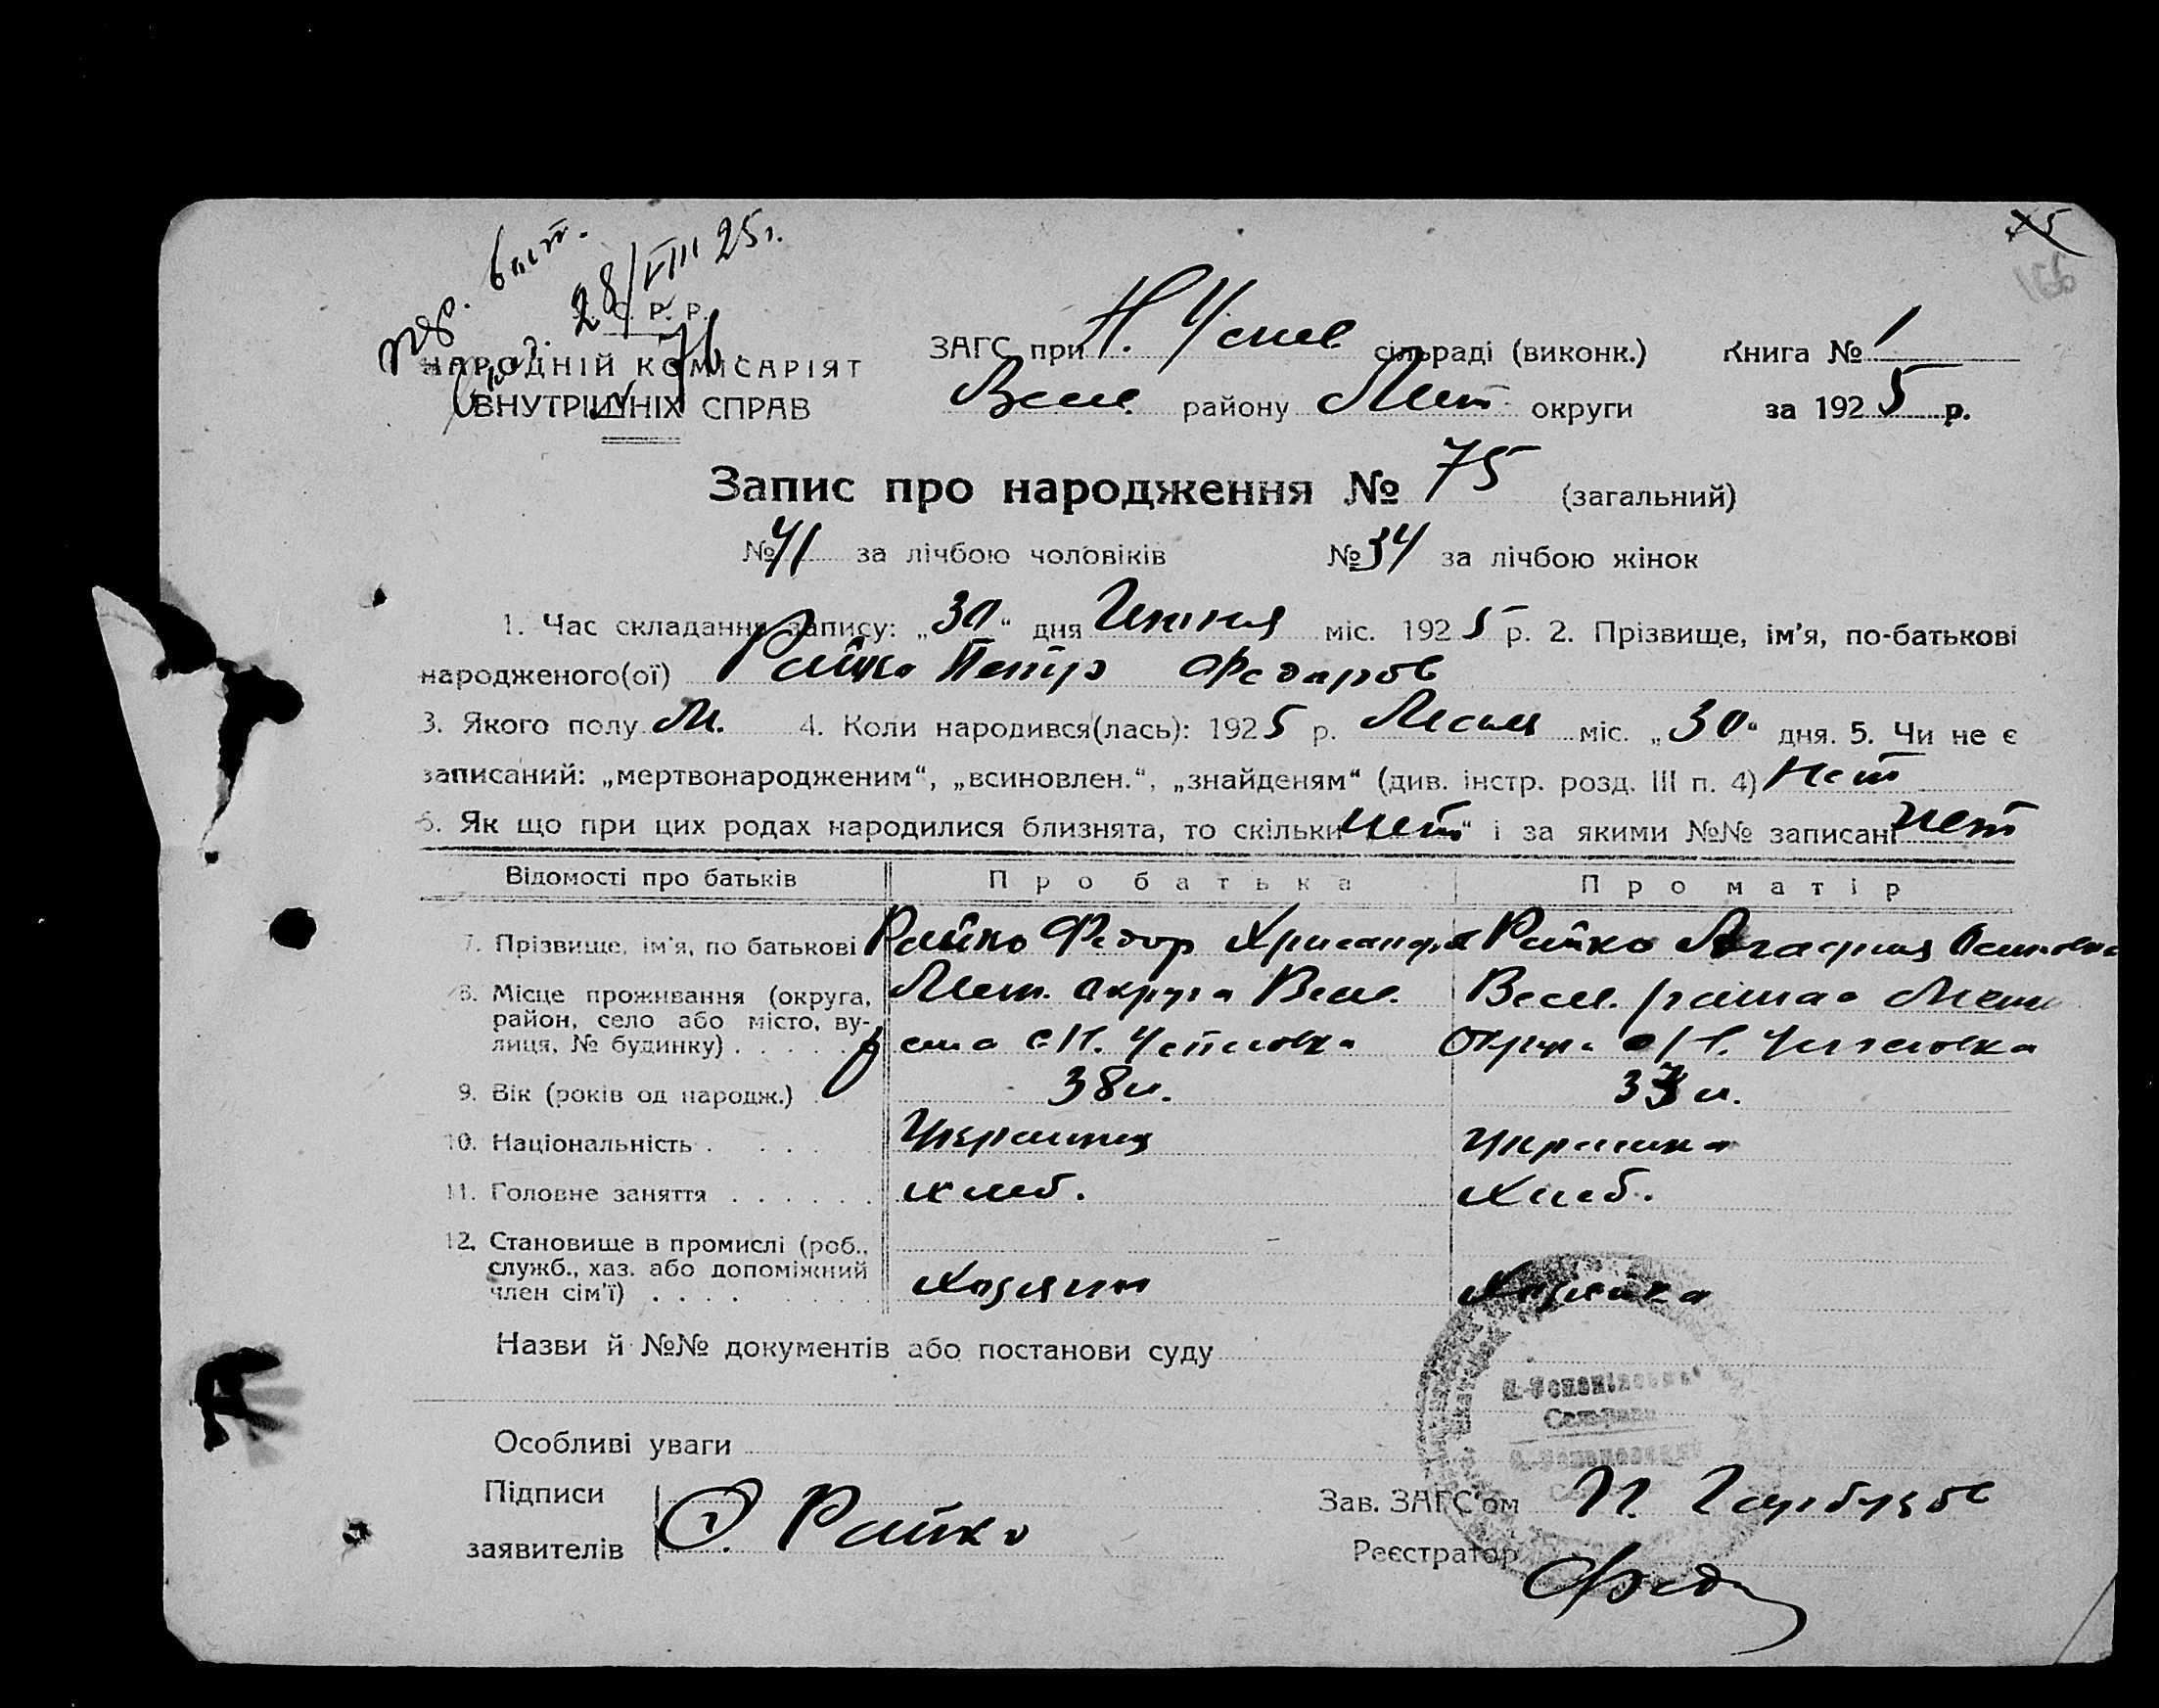 28/VIII 25г.
75
Р. Р.
НАРОДНІЙ КОМІСАРІЯТ
ВНУТРІШНІХ СПРАВ
ЗАГС при Н. Успев сільраді (виконк.) Книга № 1
Весел. району Мет округи за 1925 р.
Запис про народження № 75 (загальний)
№ 41 за лічбою чоловіків № 34 за лічбою жінок
1. Час складання запису: „30“ дня Июня міс. 1925 р. 2. Прізвище, ім’я, по-батькові
народженого(ої) Райко Петр Федоров
3. Якого полу М. 4. Коли народився(лась): 1925 р. міс. „30“ дня. 5. Чи не є
записаний: „мертвонародженим“, „всиновлен.“, „знайденям“ (див. інстр. розд. III п. 4) Нет
6. Як що при цих родах народилися близнята, то скільки нет“ і за якими №№ записані нет
Відомості про батьків Про батька Про матір
7. Прізвище, ім’я, по батькові Райко Федор Хрисанф Райко Агафия Осиповна
8. Місце проживання (округа, Мет. округа Весел.
район, село або місто, ву-
лиця, № будинку) . . . . . Н. Успеновка
9. Вік (років од народж.) . 38 л.
10. Національність . . . . Украинец Украинка
11. Головне заняття . . . . . . хлеб. хлеб.
12. Становище в промислі (роб.,
служб., хаз. або допоміжний
член сім’ї) . . . . Хозяин Хозяйка
Назви й №№ документів або постанови суду
Особливі уваги
Підписи
заявителів Ф. Райко
Зав. ЗАГС’ом П. Гарбузов
Реєстратор